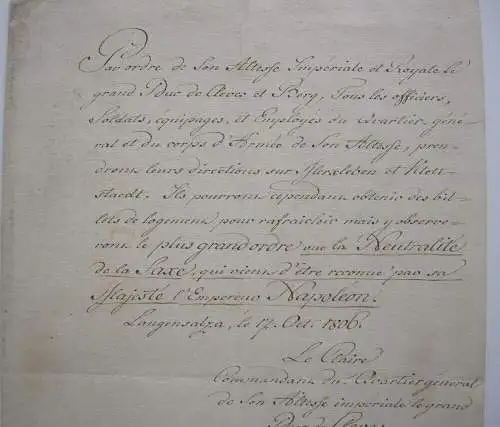 Par ordre de Son Altesse Impériale et Royale le
grand Duc de Cleves et Berg, Tous les officiers,
Soldats, équipages, et Employés du Quartier géné-
ral et du corps d'Armée de Son Altesse, pren-
dront leurs directions sur et Klett-
staedt. Ils pourront cependant obtenir des bil-
lets de logement pour rafraichir mais y observe-
ront le plus grand ordre vue la Neutralité
de la Saxe, qui vient d'être reconue par sa
Majesté l'Empereur Napoléon.
Langensalza, le 17. Oct. 1806.
Le Claire
Commandant du Quartier général
de Son Altesse imperiale le grand
Duc de Cleves